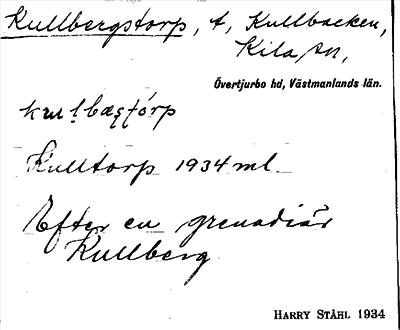 Kullbergstorp, t, Kullbacken,
Kila sn,
Övertjurbo hd, Västmanlands län.
Kulltorp 1934 ml
Efter en grenadiär
Kullberg
HARRY STÅHL 1934